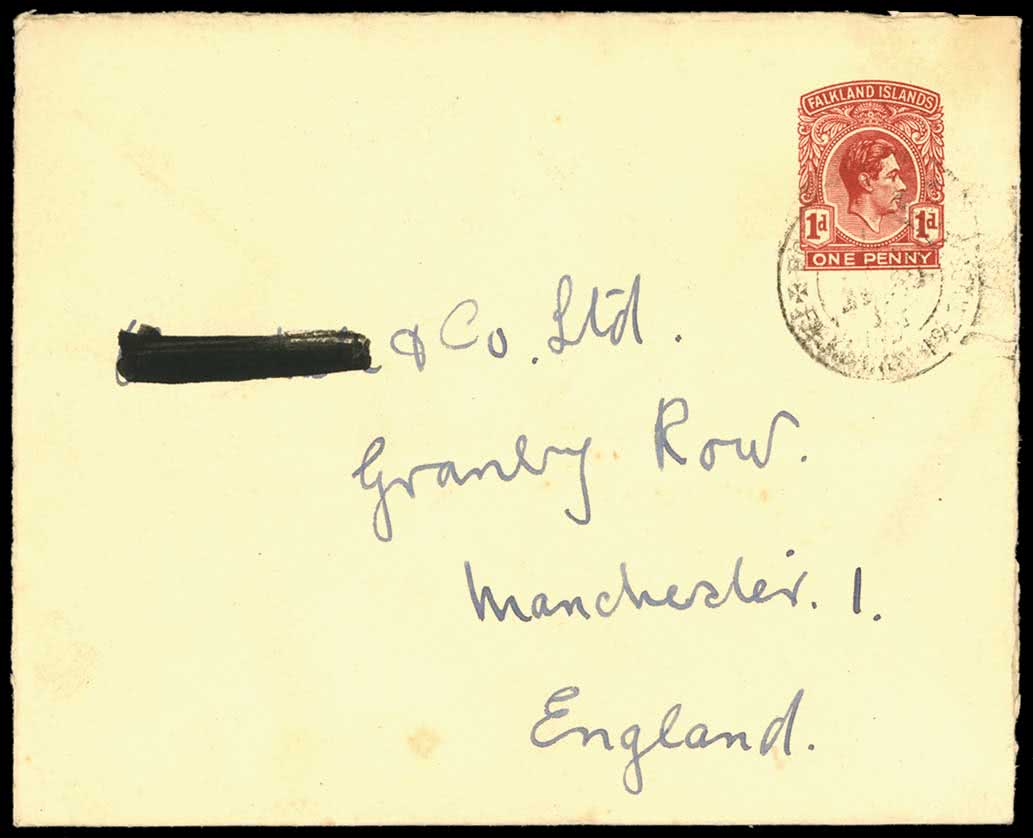 FALKLAND ISLANDS
1d 1d
ONE PENNY
& Co. Ltd.
Granby Row.
Manchester. 1.
England.